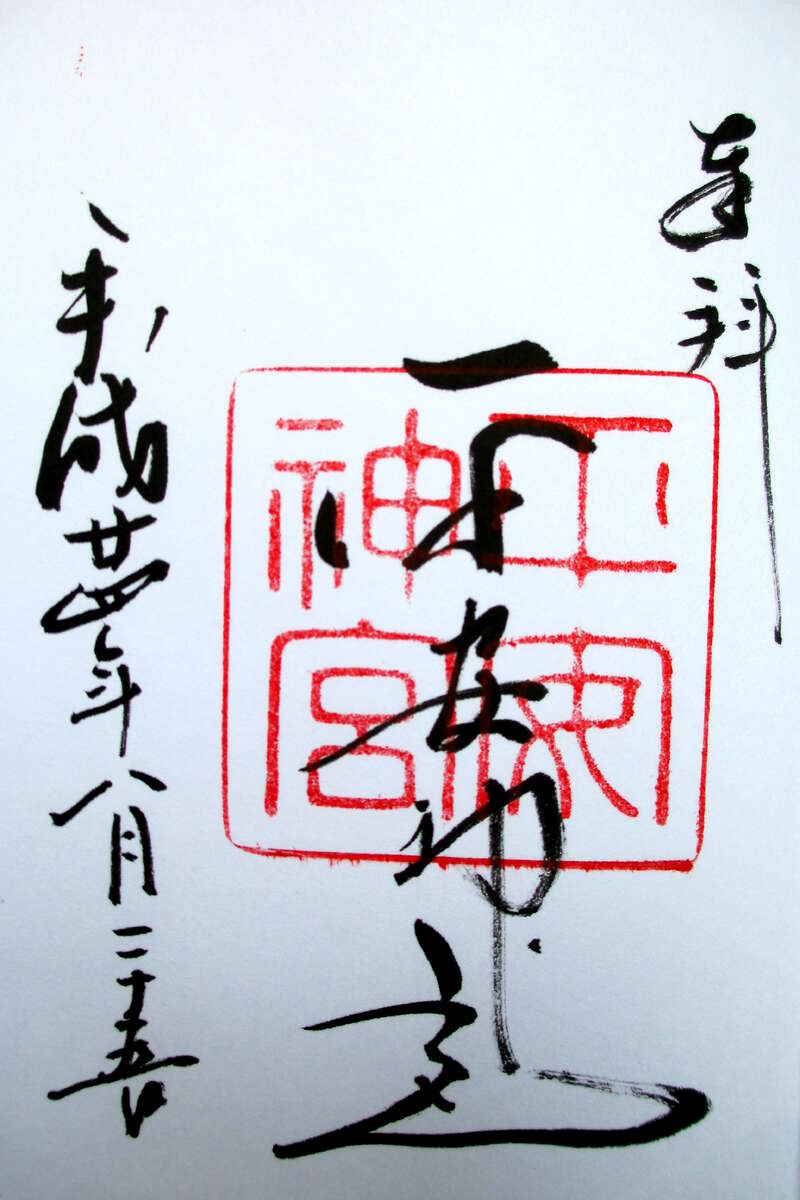 奉拝
平安神宮
平安
神宮
平成廿四年八月二十五日